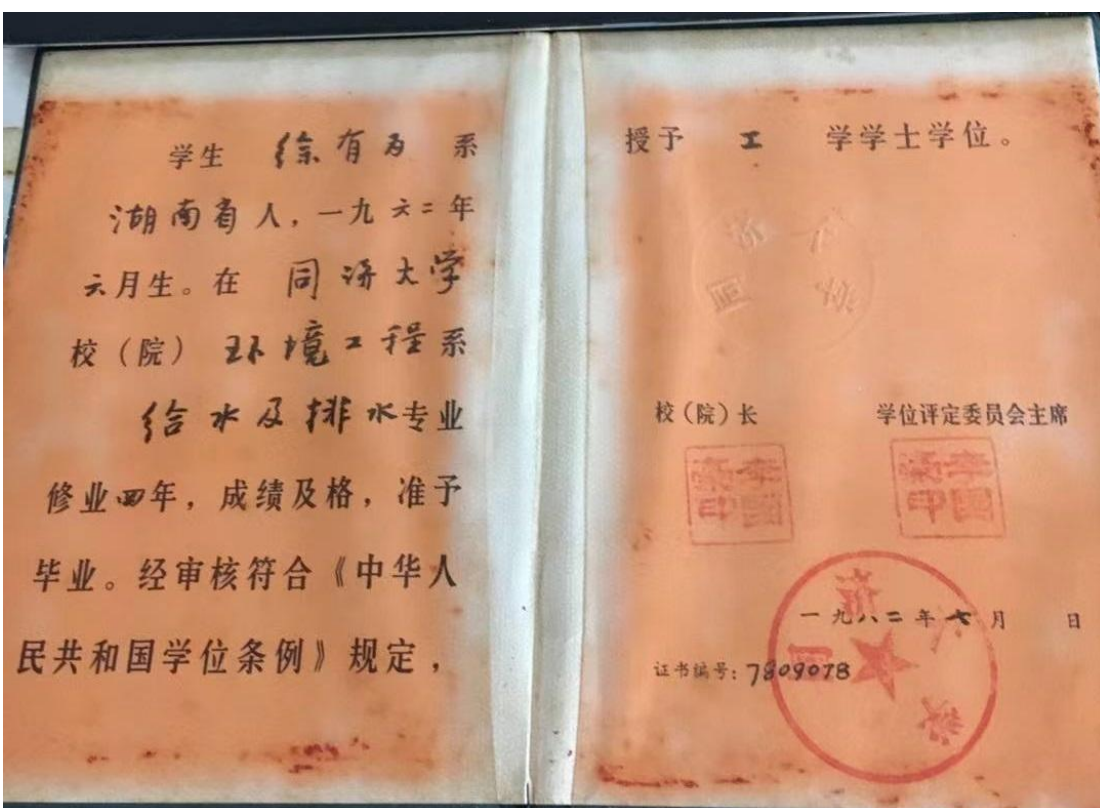 学生 徐有为 系
湖南省人，一九六二年
六月生。在 同济大学
校（院） 环境工程系
给水及排水专业
修业四年，成绩及格，准予
毕业。经审核符合《中华人
民共和国学位条例》规定，
授予 工 学学士学位。
同济大学
校（院）长 学位评定委员会主席
李国豪印 李国豪印
同济大学
一九八二年七月 日
证书编号：7809078